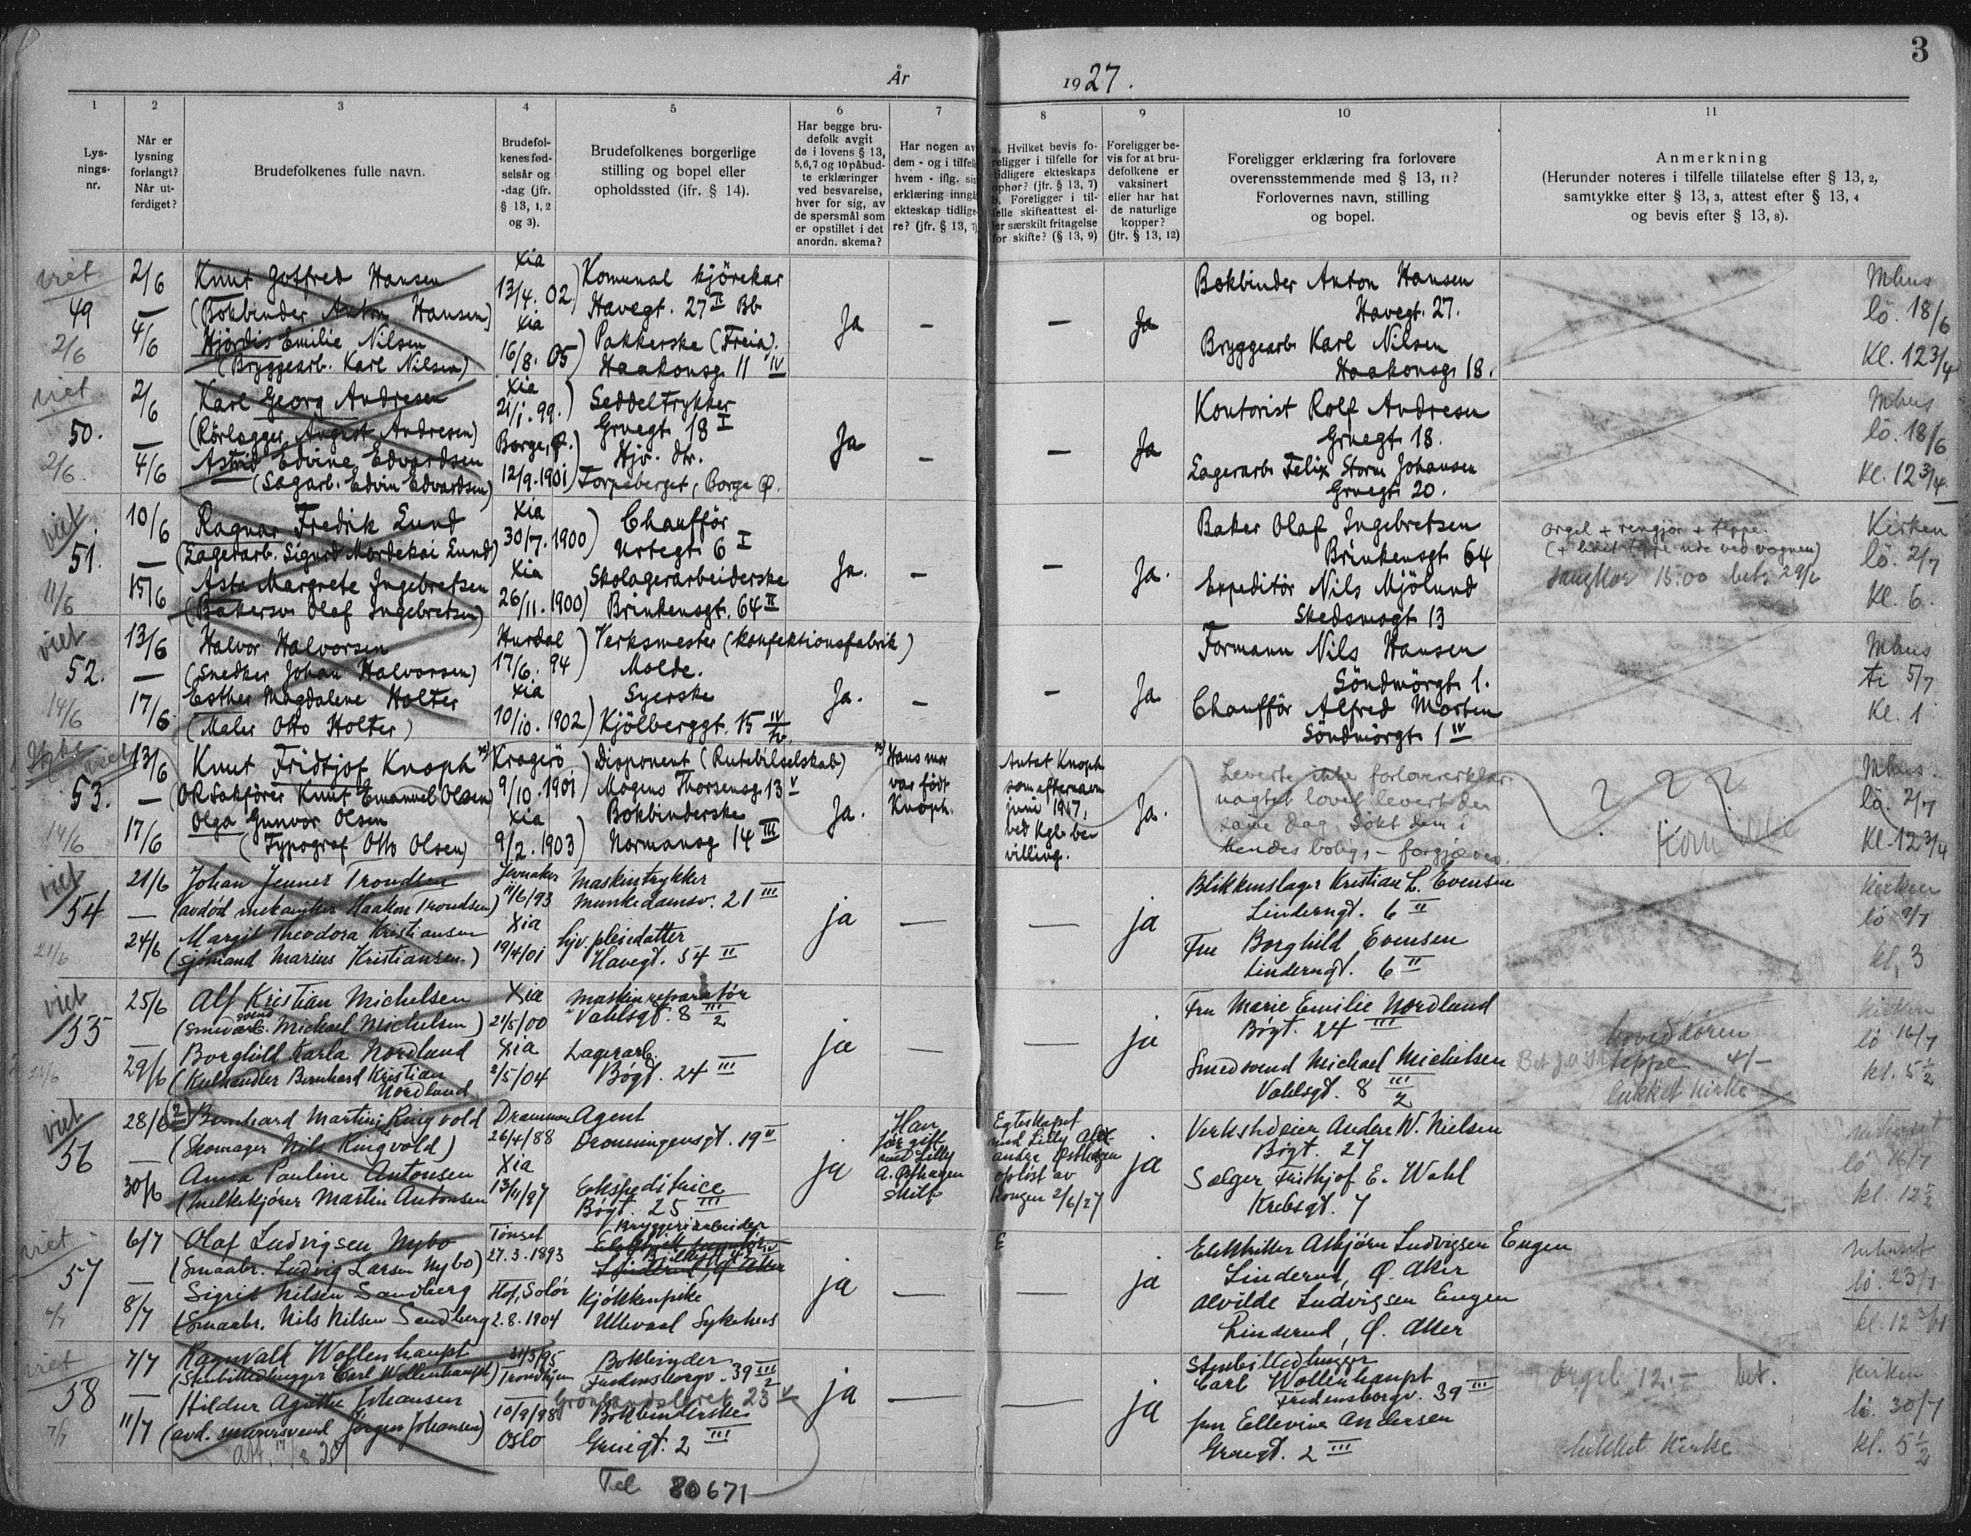 3
År 1927.
1
2
3
4
5
6
7
8
9
10
11
Lys-
nings-
nr.
Når er
lysning
forlangt?
Når ut-
ferdiget?
Brudefolkenes fulle navn.
Brudefol-
kenes fød-
selsår og
-dag (jfr.
§ 13, 1, 2
og 3).
Brudefolkenes borgerlige
stilling og bopel eller
opholdssted (jfr. § 14).
Har begge bru-
defolk avgit
de i lovens § 13,
5,6,7 og 10 påbud-
te erklæringer
ved besvarelse,
hver for sig, av
de spørsmål som
er opstillet i det
anordn. skema?
Har nogen av
dem - og i tilfelle
hvem - iflg. sin
erklæring inngå
ekteskap tidlige-
re? (jfr. § 13, 7)
a. Hvilket bevis fo-
religger i tilfelle for
tidligere ekteskaps
ophør? (jfr. § 13, 7)
b. Foreligger i til-
felle skifteattest el-
ler særskilt fritagelse
for skifte? (§ 13, 9)
Foreligger be-
vis for at bru-
defolkene er
vaksinert
eller har hat
de naturlige
kopper?
(jfr. § 13, 12)
Foreligger erklæring fra forlovere
overensstemmende med § 13, 11?
Forlovernes navn, stilling
og bopel.
Anmerkning
(Herunder noteres i tilfelle tillatelse efter § 13, 2,
samtykke efter § 13, 3, attest efter § 13, 4
og bevis efter § 13, 8).
viet
49
2/6
2/6
—
4/6
Knut Gotfred Hansen
(Bokbinder Anton Hansen)
Hjördis Emilie Nilsen
(Bryggearb. Karl Nilsen)
Xia
13/4. 02
Xia
16/8. 05
Komunal kjörekar
Havegt. 27 II Bb
Pakkerske (Freia).
Haakonsg. 11 IV
Ja
—
—
Ja
Bokbinder Anton Hansen
Havegt. 27.
Bryggearb. Karl Nilsen
Haakonsg. 18.
Mhus
lö. 18/6
Kl. 12 3/4
viet
50.
2/6.
2/6
—
4/6
Karl Georg Andresen
(Rörlægger August Andresen)
Astrid Edvine Edvardsen
(Sagarb. Edvin Edvardsen)
Xia
21/1. 99.
Borge, Ø.
12/9. 1901
Seddeltrykker
Gruegt. 18 I
Hjv. dtr.
Torpeberget, Borge Ø.
Ja
—
—
Ja
Kontorist Rolf Andresen
Gruegt. 18.
Lagerarb. Felix Storm Johansen
Gruegt. 20.
Mhus
lö. 18/6
Kl. 12 3/4
viet
51.
11/6
10/6
—
15/6
Ragnar Fredrik Lund
(Lagerarb. Sigurd Mordekai Lund)
Asta Margrete Ingebretsen
(Bakersv. Olaf Ingebretsen)
Xia
30/7. 1900
Xia
26/11. 1900
Chaufför
Urtegt. 6 I
Skolagerarbeiderske
Brinkensgt. 64 II
Ja.
—
—
Ja.
Baker Olaf Ingebretsen
Brinkensgt 64
Expeditör Nils Mjölund
Skedsmogt 13
orgel + rengjør + teppe
15.00 bet. 29/6
Kirken
lö. 2/7
Kl. 6.
viet
52.
14/6
13/6
—
17/6
Halvor Halvorsen
(Snedker Johan Halvorsen)
Esther Magdalene Holter
(Maler Otto Holter)
Hurdal
17/6. 94
Xia
10/10. 1902
Verksmester (konfektionsfabrik)
Molde.
Syerske
Kjölberggt. 15 IV
Ja.
—
—
Ja
Formann Nils Hansen
Söndmörgt. 1.
Chaufför Alfred Morten
Söndmörgt. 1 IV
Mhus
ti 5/7
Kl. 1
viet
53.
14/6
13/6
—
17/6
Knut Fridtjof Knoph *)
(ORSakförer Knut Emanuel Olsen)
Olga Gunvor Olsen
(Typograf Otto Olsen)
Kragerö
9/10. 1901
Xia
9/2. 1903
Disponent (Rutebilselskab)
Mogens Thorsensg. 13 V
Bokbinderske
Normansg 14 III
Ja.
*) Hans mor
var född
Knoph.
Antat Knoph
som efternavn
juni 1917,
ved Kgl. be-
villing.
Ja.
Leverte ikke forlovererklær.
uagtet lovet levert den
same dag. Søkt dem i
hendes bolig, – forgjæves.
? ? ? ?
Kom ikke
Mhus.
lö. 2/7
Kl. 12 3/4
viet
54
21/6
21/6
—
24/6
Johan Jenner Trondsen
(avdöd mekaniker Haakon Trondsen)
Margit Theodora Kristiansen
(sjömand Marius Kristiansen)
Jevnaker
11/6/93
Xia
19/4/01
Maskintrykker
Munkedamsv. 21 III
hjv. pleiedatter
Havegt. 54 II
ja
—
—
ja
Blikkenslager Kristian L. Evensen
Linderngt. 6 II
Fru Borghild Evensen
Linderngt. 6 II
kirken
lö 9/7
kl. 3
viet
55
25/6
—
29/6
Alf Kristian Michelsen
svend
(Smedarb. Michael Michelsen)
Borghild Karla Nordland
(Kulhandler Bernhard Kristian
Nordland
Xia
21/5/00
Xia
2/5/04
Maskinreparatör
Vahlsgt. 8 III/2
Lagerarb.
Bögt. 24 III
ja
—
—
ja
Fru Marie Emilie Nordland
Bögt. 24 III
Smedsvend Michael Michelsen
Vahlsgt. 8 III/2
hoveddören
teppe 4/-
lukket kirke
kirken
lö 16/7
kl. 5 1/2
viet
56
28/6
—
30/6
Bernhard Martin Ringvold
(Skomager Nils Ringvold)
Anna Pauline Antonsen
(melkekjörer Martin Antonsen
Drammen
26/4/88
Xia
13/11/97
Agent
Dronningensgt. 19 II
Ekspeditrice
Bögt. 25 III
ja
Han
før gift
med Lilly
A. Østhagen
Skilt
Egteskapet
med Lilly Alex-
andra Østhagen
opløst av
Kongen 2/6/27
ja
Verkstedeier Andre W. Nielsen
Bögt. 27
Sælger Frithjof E. Wahl
Krebsgt. 7
lö 16/7
kl. 12
viet
57
6/7
—
8/7
Olaf Ludvigsen Nybo
(Smaabr. Ludvig Larsen Nybo)
Sigrid Nilsen Sandberg
(Smaabr. Nils Nilsen Sandberg
Tönset
27.3.1893
Hof, Solör
2.8.1904
Bryggeriarbeider
Kjökkenpike
Ullevaal Sykehus
ja
—
—
ja
Elektriker Asbjörn Ludvigsen Engen
Linderud, Ø. Aker
Alvilde Ludvigsen Engen
Linderud, Ø. Aker
lö. 23/7
viet
58
7/7
7/7
—
11/7
Ragnvald Wollenhaupt
(Stenbilledhugger Carl Wollenhaupt)
Hildur Agathe Johansen
(avd. murersvend Jörgen Johansen)
31/3/95
Trondhjem
10/9/98
Oslo
Bokbinder
Fredensborgv. 39 III/2
Grönlandsleret 23 V
Bokbinderske
Gruegt. 2 III
Tel 80671
ja
—
—
ja
Stenbilledhugger
Carl Wollenhaupt
Fredensborgv. 39 III
fru Ellevine Andersen
Gruegt. 2 III
orgel 12.– bet.
lukket kirke
kirken
lö. 30/7
kl. 5 1/2